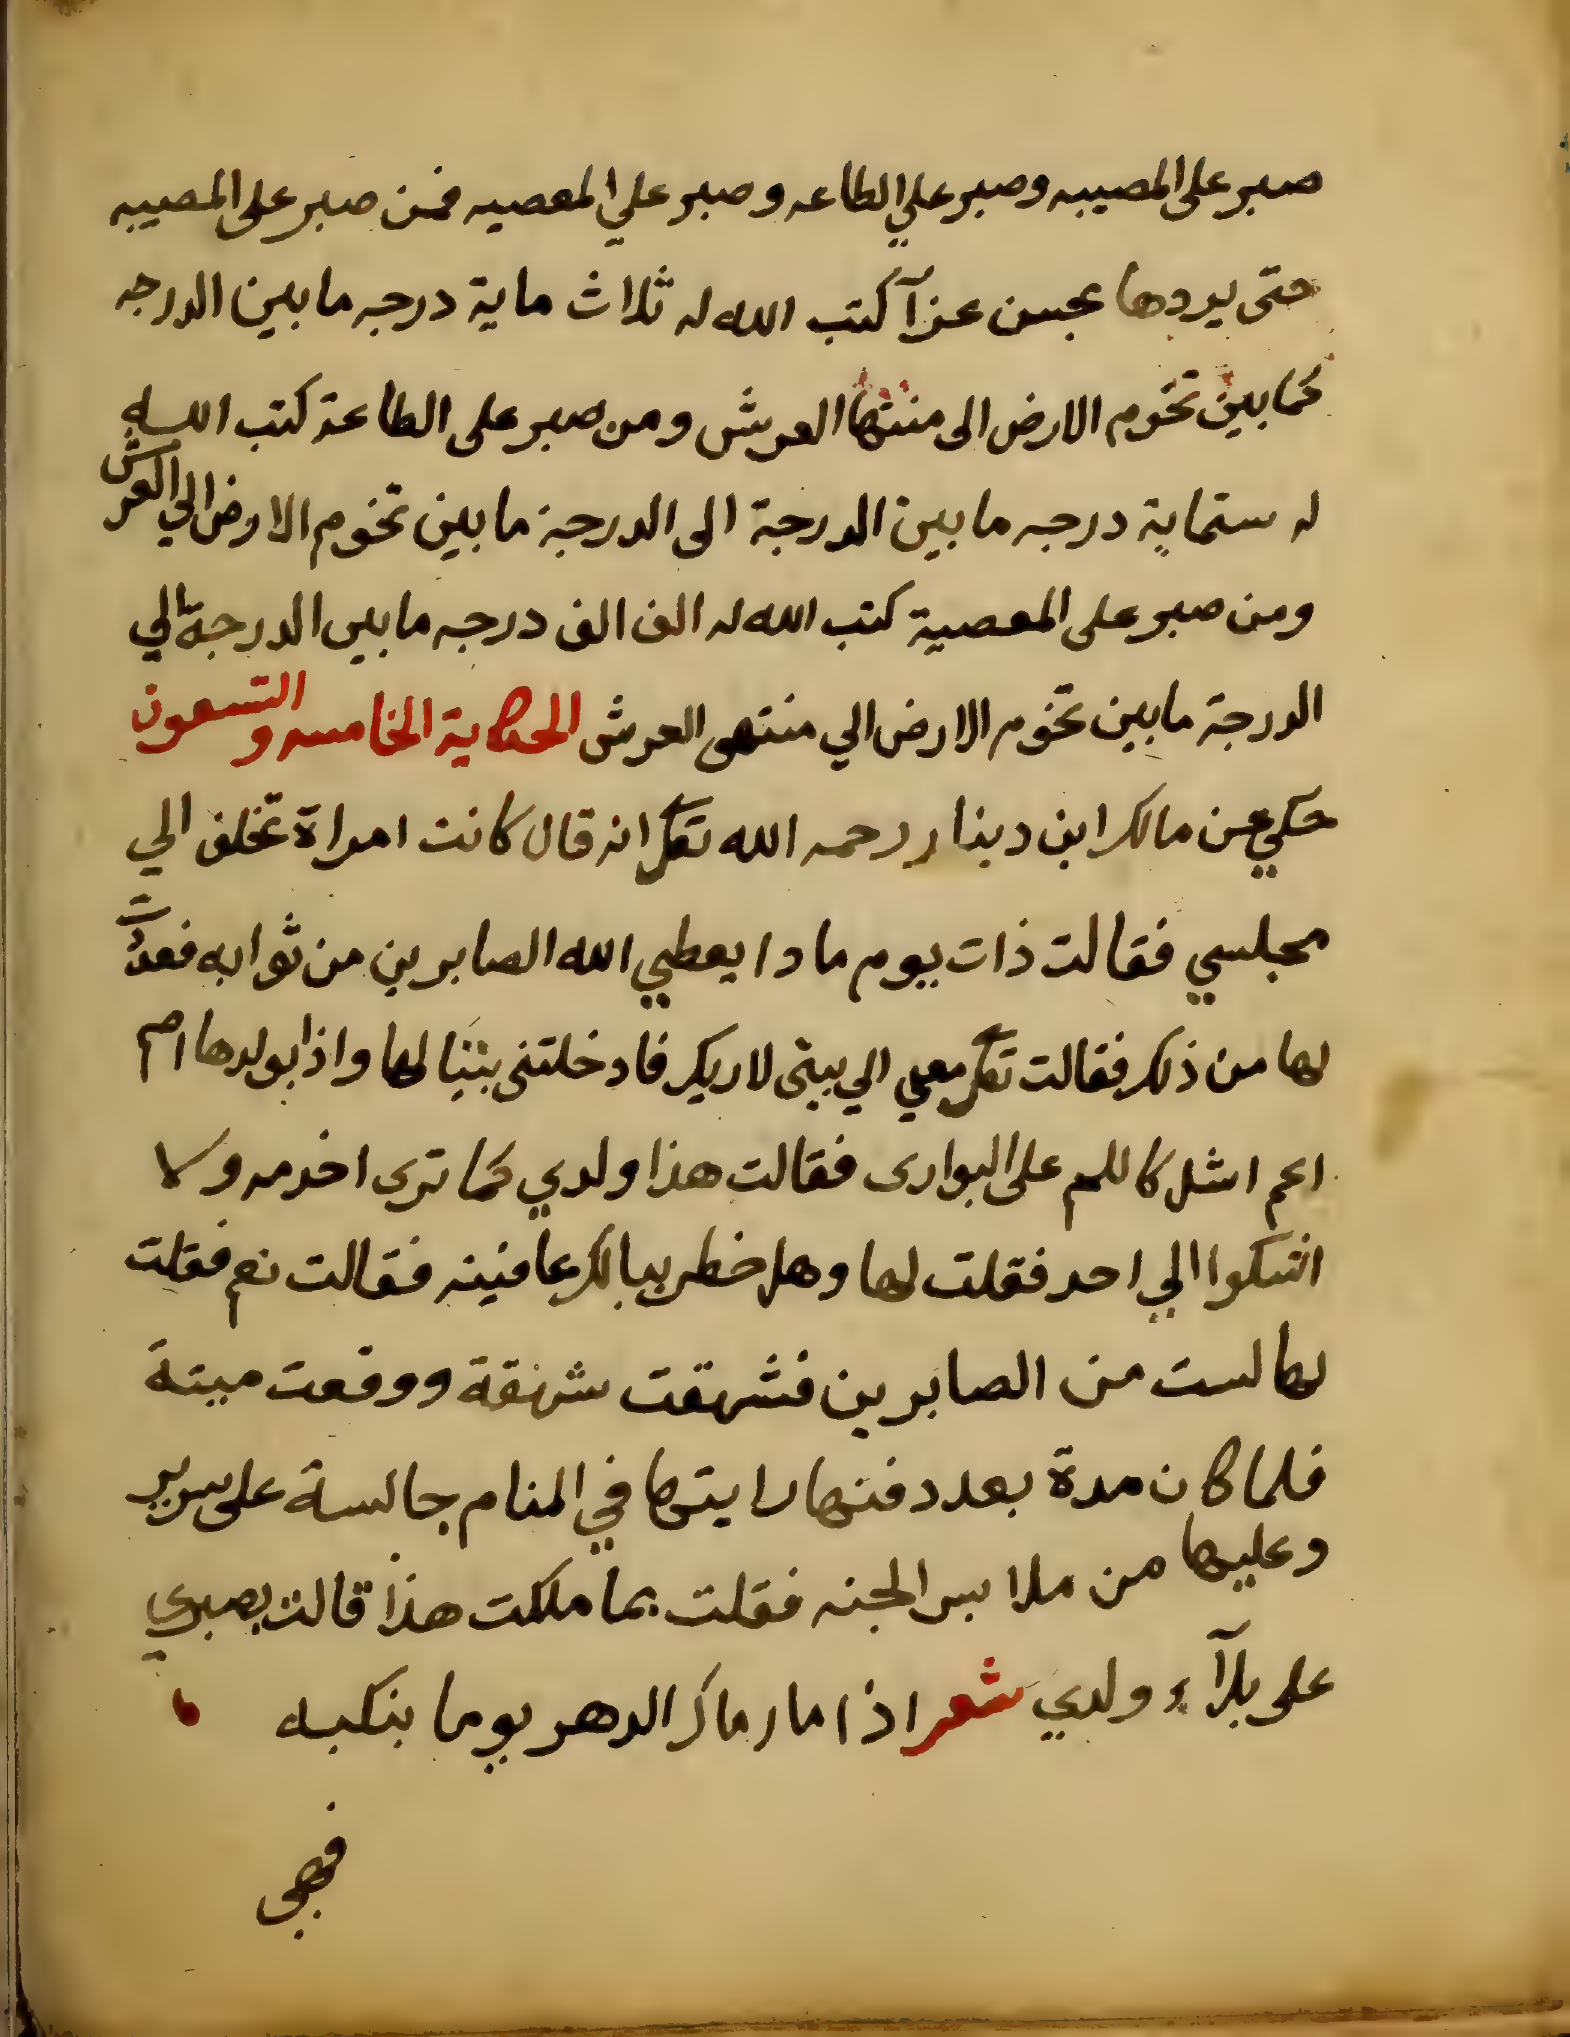 صبر على المصيبه وصبر علي الطاعه وصبر علي المعصيه فمن صبر على المصيبه
حتى يردها بحسن عزآ كتب الله له ثلاث ماية درجه ما بين الدرجه
كما بين تخوم الارض الى منتها العرش ومن صبر على الطاعة كتب الله
له ستماية درجه ما بين الدرجة الى الدرجة ما بين تخوم الارض الي العرش
ومن صبر على المعصية كتب الله له الف الف درجه ما بين الدرجة الي
الدرجة ما بين تخوم الارض الي منتهى العرش الحكاية الخامسه والتسعون
حكي عن مالك ابن دينار رحمه الله تعالى انه قال كانت امراة تختلف الي
مجلسي فقالت ذات يوم مادا يعطي الله الصابرين من ثوابه فعددت
لها من ذلك فقالت تعال معي الي بيتى لاريك فادخلتنى بيتا لها واذا بولدها اصم
اعم اشل كاللحم على البوارى فقالت هذا ولدي كما ترى اخدمه ولا
اشكوا الي احد فقلت لها وهل خطر ببالك عافيته فقالت نعم فقلت
لها لست من الصابرين فشهقت شهقة ووقعت ميتة
فلما كان مدة بعد دفنها رايتها في المنام جالسة على سرير
وعليها من ملابس الجنه فقلت بما ملكت هذا قالت بصبري
على بلآء ولدي شعر اذا ما رماك الدهر يوما بنكبه
فهيى